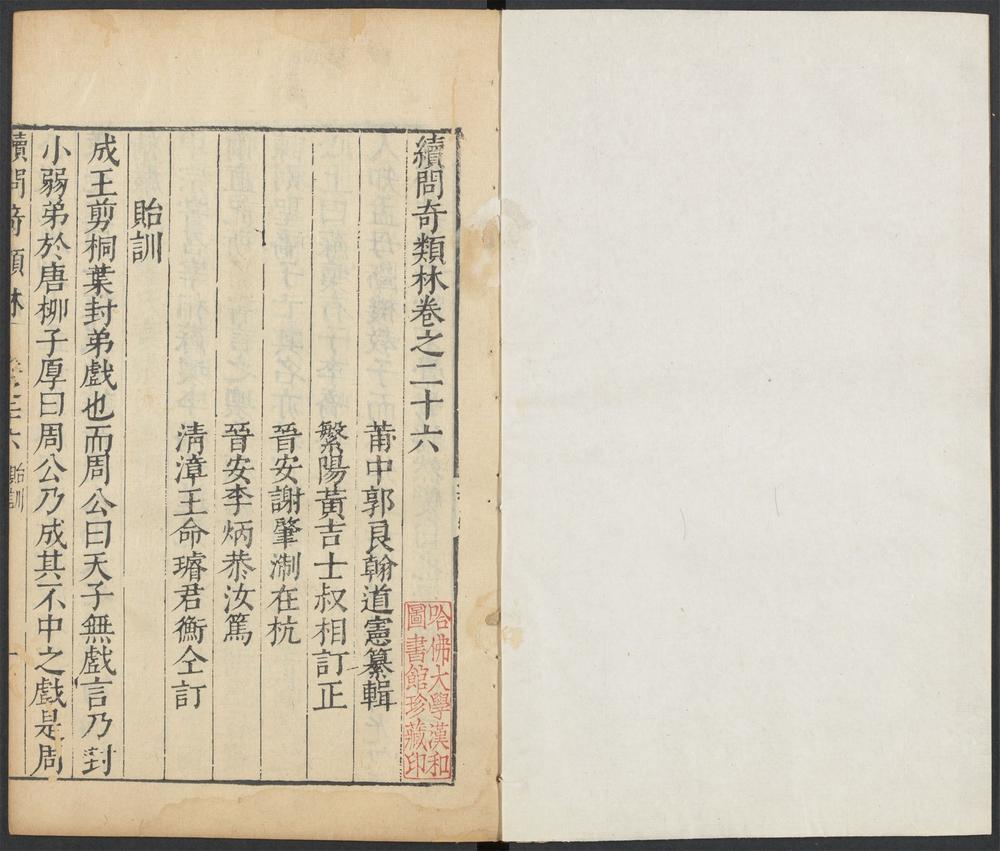 續問奇類林卷之二十六
莆中郭良翰道憲纂輯
繁陽黃吉士叔相訂正
晉安謝肇淛在杭
晉安李炳恭汝篤
淸漳王命璿君衡仝訂
貽訓
成王剪桐葉封弟戲也而周公曰天子無戲言乃封
小弱弟於唐柳子厚曰周公乃成其不中之戲是周
續問奇類林
卷之二六 貽訓
一
哈佛大學漢和
圖書館珍藏印